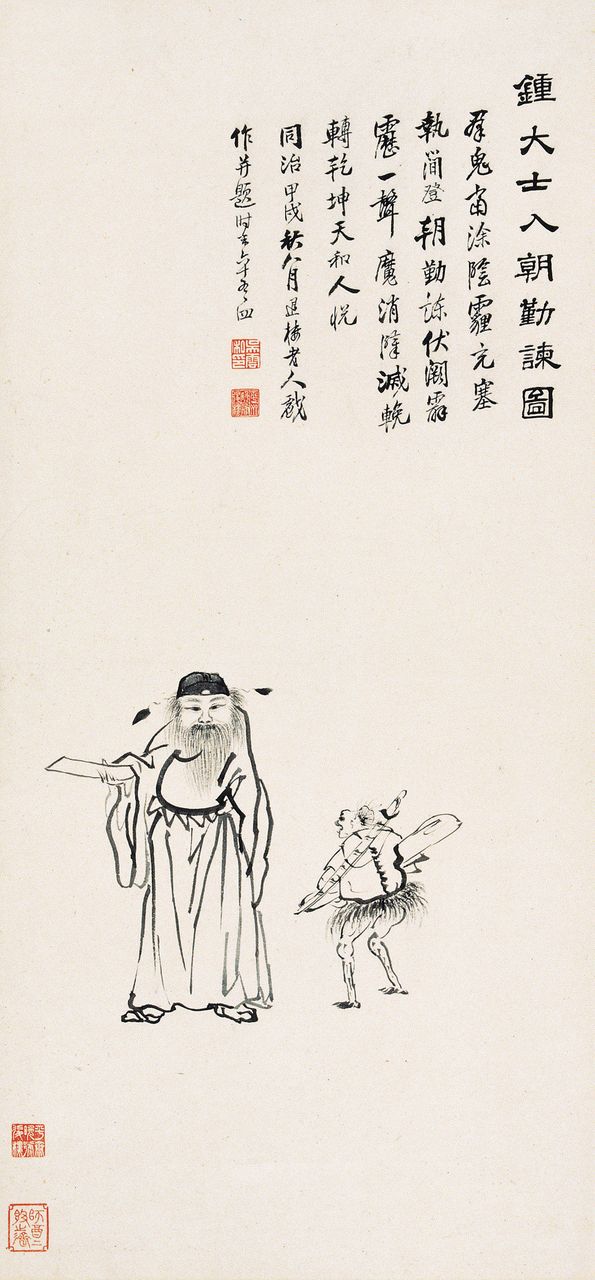 鍾大士入朝勤諫圖
羣鬼當涂陰霾充塞
執簡登朝勤諫伏闕霹
靂一聲魔消障滅輓
轉乾坤天和人悅
同治甲戌秋八月退樓老人戲
作并題時年六十有四